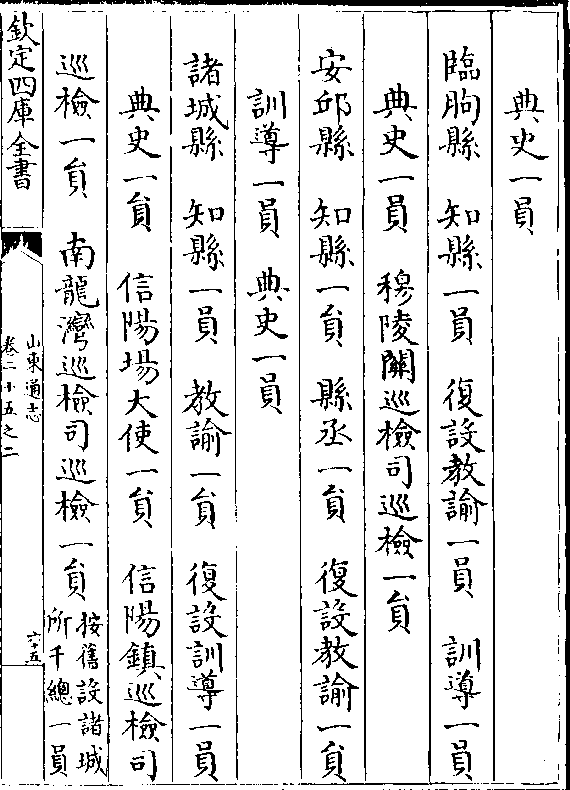 典史一員
臨朐縣 知縣一員 復設教諭一員 訓導一員
典史一員 穆陵關巡檢司巡檢一員
安邱縣 知縣一員 縣丞一員 復設教諭一員
訓導一員 典史一員
諸城縣 知縣一員 教諭一員 復設訓導一員
典史一員 信陽場大使一員 信陽鎮巡檢司
巡檢一員 南龍灣巡檢司巡檢一員 按舊設諸城
所千總一員
欽定四庫全書
山東通志
卷二十五之二
六十五